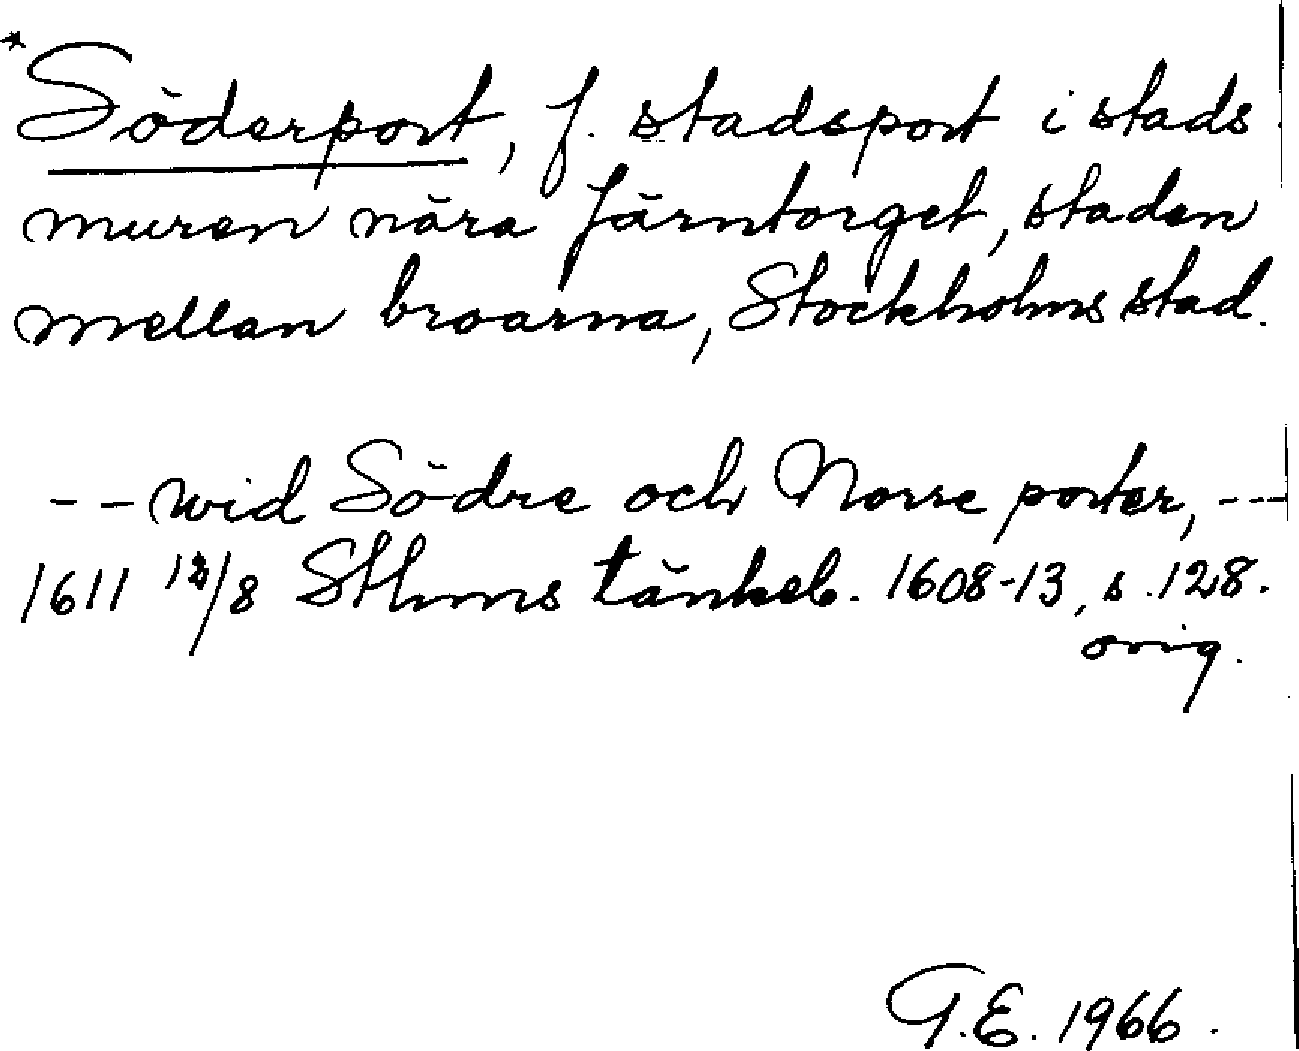 *Söderport, f. stadsport i stads
muren nära Järntorget, staden
mellan broarna, Stockholms stad.
-- wid Södre och Norre porter, ---
1611 12/8 Sthms tänkeb. 1608-13, s. 128.
orig.
G.E. 1966.